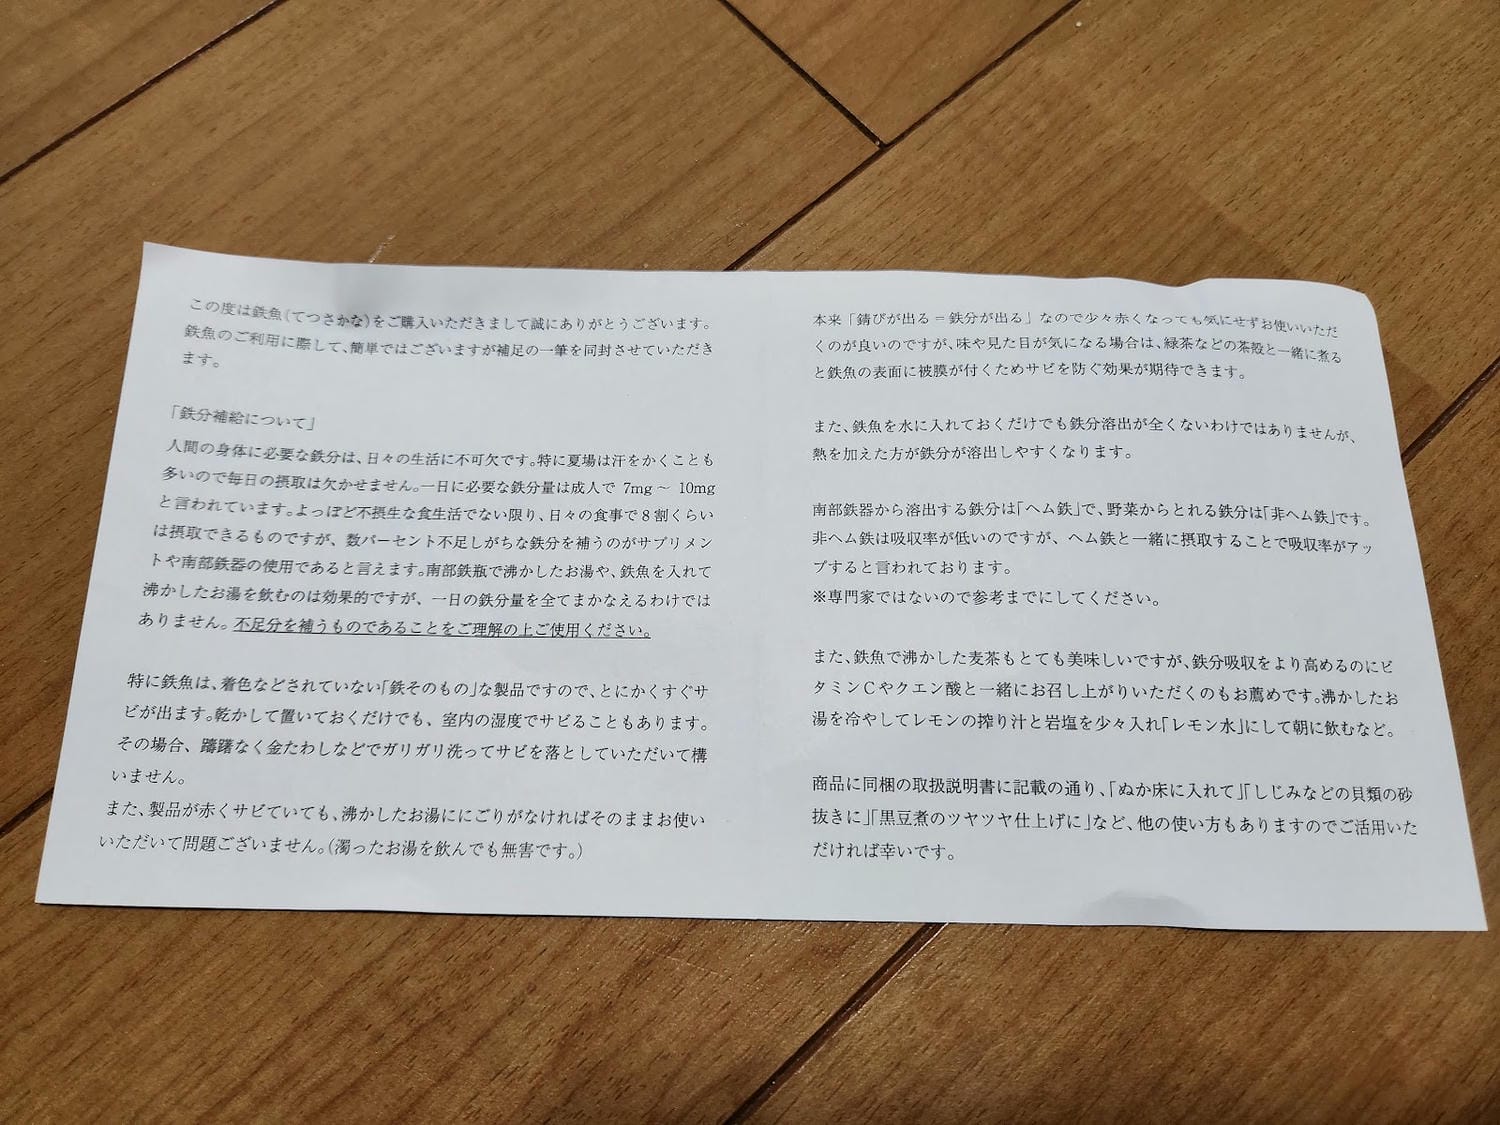 この度は鉄魚(てつさかな)をご購入いただきまして誠にありがとうございます。
鉄魚のご利用に際して、簡単ではございますが補足の一筆を同封させていただき
ます。
「鉄分補給について」
人間の身体に必要な鉄分は、日々の生活に不可欠です。特に夏場は汗をかくことも
多いので毎日の摂取は欠かせません。一日に必要な鉄分量は成人で 7mg ～ 10mg
と言われています。よっぽど不摂生な食生活でない限り、日々の食事で8割くらい
は摂取できるものですが、数パーセント不足しがちな鉄分を補うのがサプリメン
トや南部鉄器の使用であると言えます。南部鉄瓶で沸かしたお湯や、鉄魚を入れて
沸かしたお湯を飲むのは効果的ですが、一日の鉄分量を全てまかなえるわけでは
ありません。不足分を補うものであることをご理解の上ご使用ください。
特に鉄魚は、着色などされていない「鉄そのもの」な製品ですので、とにかくすぐサ
ビが出ます。乾かして置いておくだけでも、室内の湿度でサビることもあります。
その場合、躊躇なく金たわしなどでガリガリ洗ってサビを落としていただいて構
いません。
また、製品が赤くサビていても、沸かしたお湯ににごりがなければそのままお使い
いただいて問題ございません。(濁ったお湯を飲んでも無害です。)
本来「錆びが出る＝鉄分が出る」なので少々赤くなっても気にせずお使いいただ
くのが良いのですが、味や見た目が気になる場合は、緑茶などの茶殻と一緒に煮る
と鉄魚の表面に被膜が付くためサビを防ぐ効果が期待できます。
また、鉄魚を水に入れておくだけでも鉄分溶出が全くないわけではありませんが、
熱を加えた方が鉄分が溶出しやすくなります。
南部鉄器から溶出する鉄分は「ヘム鉄」で、野菜からとれる鉄分は「非ヘム鉄」です。
非ヘム鉄は吸収率が低いのですが、ヘム鉄と一緒に摂取することで吸収率がアッ
プすると言われております。
※専門家ではないので参考までにしてください。
また、鉄魚で沸かした麦茶もとても美味しいですが、鉄分吸収をより高めるのにビ
タミンCやクエン酸と一緒にお召し上がりいただくのもお薦めです。沸かしたお
湯を冷やしてレモンの搾り汁と岩塩を少々入れ「レモン水」にして朝に飲むなど。
商品に同梱の取扱説明書に記載の通り、「ぬか床に入れて」「しじみなどの貝類の砂
抜きに」「黒豆煮のツヤツヤ仕上げに」など、他の使い方もありますのでご活用いた
だければ幸いです。